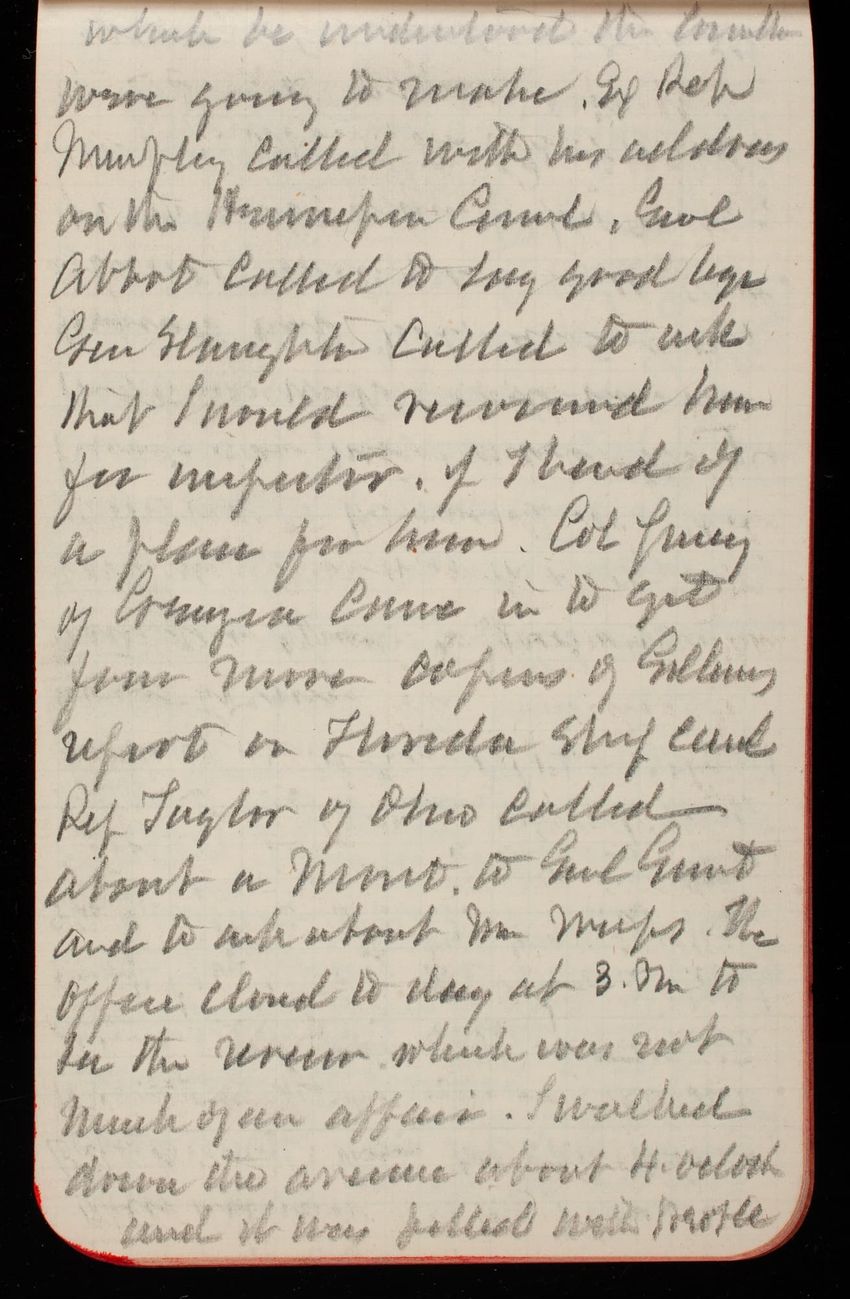 which he understood the Committee
were going to make. Ex Rep
Murphey called with his address
on the Hennepin Canal, Genl
Abbot called to say good bye
Gen Slaughter called to ask
that I would recommend him
for inspector. if I heard of
a place for him. Col
of Georgia came in to get
four more copies of Gillmores
report on Florida Ship Canal
Rep Taylor of Ohio called
about a Monmt. to Genl Grant
and to ask about Mr. The
Office closed to day at 3. Pm to
see the review which was not
much of an affair. I walked
down the avenue about 4. oclock
and it was filled with people